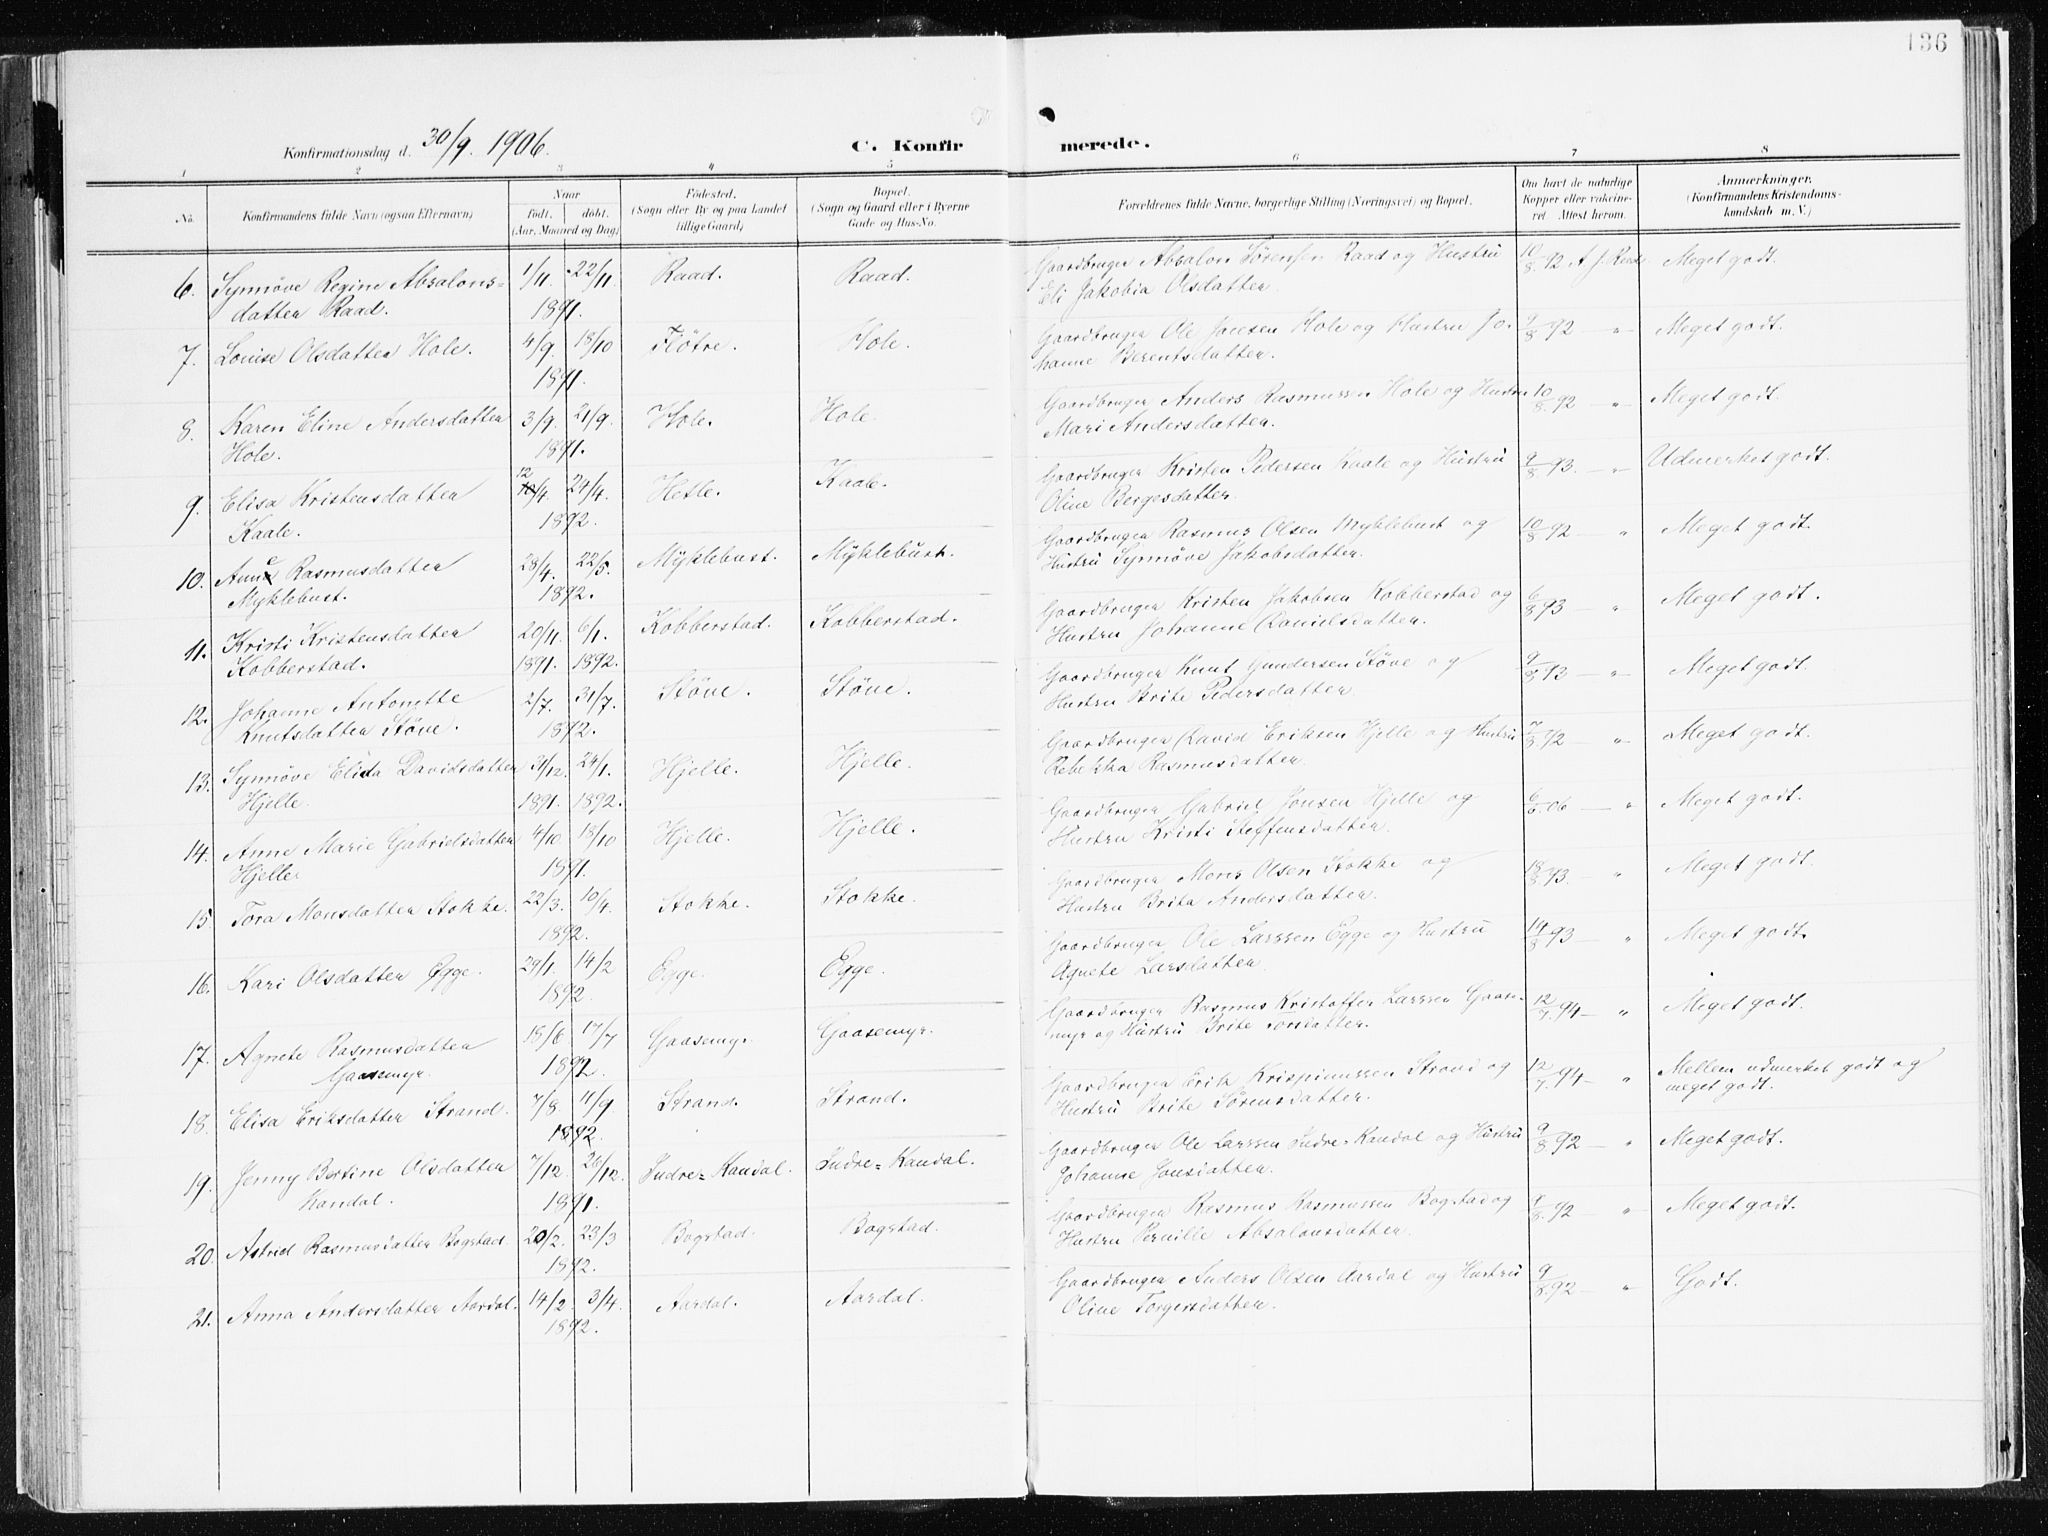 136
Konfirmationsdag d. 30/9. 1906.
C. Konfirmerede.
1 2 3 4 5 6 7 8
No. Konfirmandens fulde Navn (ogsaa Efternavn) Naar født, døbt. (Aar, Maaned og Dag) Fødested. (Sogn eller By og paa Landet tillige Gaard) Bopæl. (Sogn og Gaard eller i Byerne Gade og Hus-No. Forældrenes fulde Navne, borgerlige Stilling (Næringsvei) og Bopæl. Om havt de naturlige Kopper eller vakcineret. Attest herom. Anmærkninger. (Konfirmandens Kristendomskundskab m. V.)
6. Synnöve Regine Absalons= 1/11. 22/11. Raad. Raad. Gaardbruger Absalon Sörensen Raad og Hustru 10/8.92 A. J. Meget godt.
datter Raad. 1891. Eli Jakobia Olsdatter.
7. Louise Olsdatter Hole. 4/9. 18/10 Flötre. Hole. Gaardbruger Ole Jonsen Hole og Hustru Jo- 9/8 92 " Meget godt.
1891. hanne Berentsdatter.
8. Karen Eline Andersdatter 3/9. 21/9. Hole. Hole. Gaardbruger Anders Rasmussen Hole og Hustru 10/8.92 " Meget godt.
Hole. 1891. Mari Andersdatter.
9. Elisa Kristensdatter 12/4. 24/4. Hetle. Kaale. Gaardbruger Kristen Pedersen Kaale og Hustru 9/8 93. " Udmerket godt.
Kaale. 1892. Oline Bergesdatter.
10. Anne Rasmusdatter 28/4. 22/5. Myklebust. Myklebust. Gaardbruger Rasmus Olsen Myklebust og 10/8.92 " Meget godt.
Myklebust. 1892. Hustru Synnöve Jakobsdatter.
11. Kristi Kristensdatter 20/11. 6/1. Kobberstad. Kobberstad. Gaardbruger Kristen Jakobsen Kobberstad og 6/8 93 " Meget godt.
Kobberstad. 1891. 1892. Hustru Johanne Danielsdatter.
12. Johanne Antonette 2/7. 31/7. Stöve. Stöve. Gaardbruger Knut Gundersen Stöve og 9/8 93 " Meget godt.
Knutsdatter Stöve. 1892. Hustru Brite Pedersdatter.
13. Synnöve Elida Davidsdatter 31/12. 24/1. Hjelle. Hjelle. Gaardbruger David Eriksen Hjelle og Hustru 7/8 92 " Meget godt.
Hjelle. 1891. 1892. Rebekka Rasmusdatter.
14. Anne Marie Gabrielsdatter 4/10. 18/10 Hjelle. Hjelle. Gaardbruger Gabriel Jonsen Hjelle og 06 " Meget godt.
Hjelle 1891. Hustru Kristi Steffensdatter.
15. Tora Monsdatter Stokke. 22/3. 10/4. Stokke. Stokke. Gaardbruger Mons Olsen Stokke og 18/8 93. " Meget godt.
1892. Hustru Brita Andersdatter.
16. Kari Olsdatter Egge. 29/1. 14/2 Egge. Egge. Gaardbruger Ole Larssen Egge og Hustru 14/8 93 " Meget godt.
1892. Agnete Larsdatter.
17. Agnete Rasmusdatter 15/6 17/7 Gaasemyr. Gaasemyr. Gaardbruger Rasmus Kristoffer Larssen Gaase- 12/7.94 " Meget godt.
Gaasemyr. 1892. myr og Hustru Brite
18. Elisa Eriksdatter Strand. 7/8. 11/9 Strand. Strand. Gaardbruger Erik Krispinussen Strand og 12/7.94 " Mellem udmerket godt og
1892. Hustru Brite Sörensdatter. meget godt.
19. Jenny Bertine Olsdatter 7/12. 26/12. Indre=Kandal. Indre=Kandal. Gaardbruger Ole Larssen Indre=Kandal og Hustru 9/8 92 " Meget godt.
Kandal. 1891. Johanne Jonsdatter.
20. Astrid Rasmusdatter Bogstad. 20/2. 23/3 Bogstad. Bogstad. Gaardbruger Rasmus Rasmussen Bogstad og 8/8.92 " Meget godt.
1892. Hustru Pernille Absalonsdatter.
21. Anna Andersdatter Aardal. 14/2. 3/4. Aardal. Aardal. Gaardbruger Anders Olsen Aardal og Hustru 9/8.92 " Godt.
1892. Oline Torgersdatter.